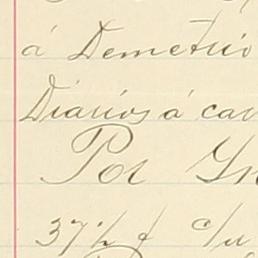 á Demetrio
Diarios á car
Por
37½ ¢ c/u